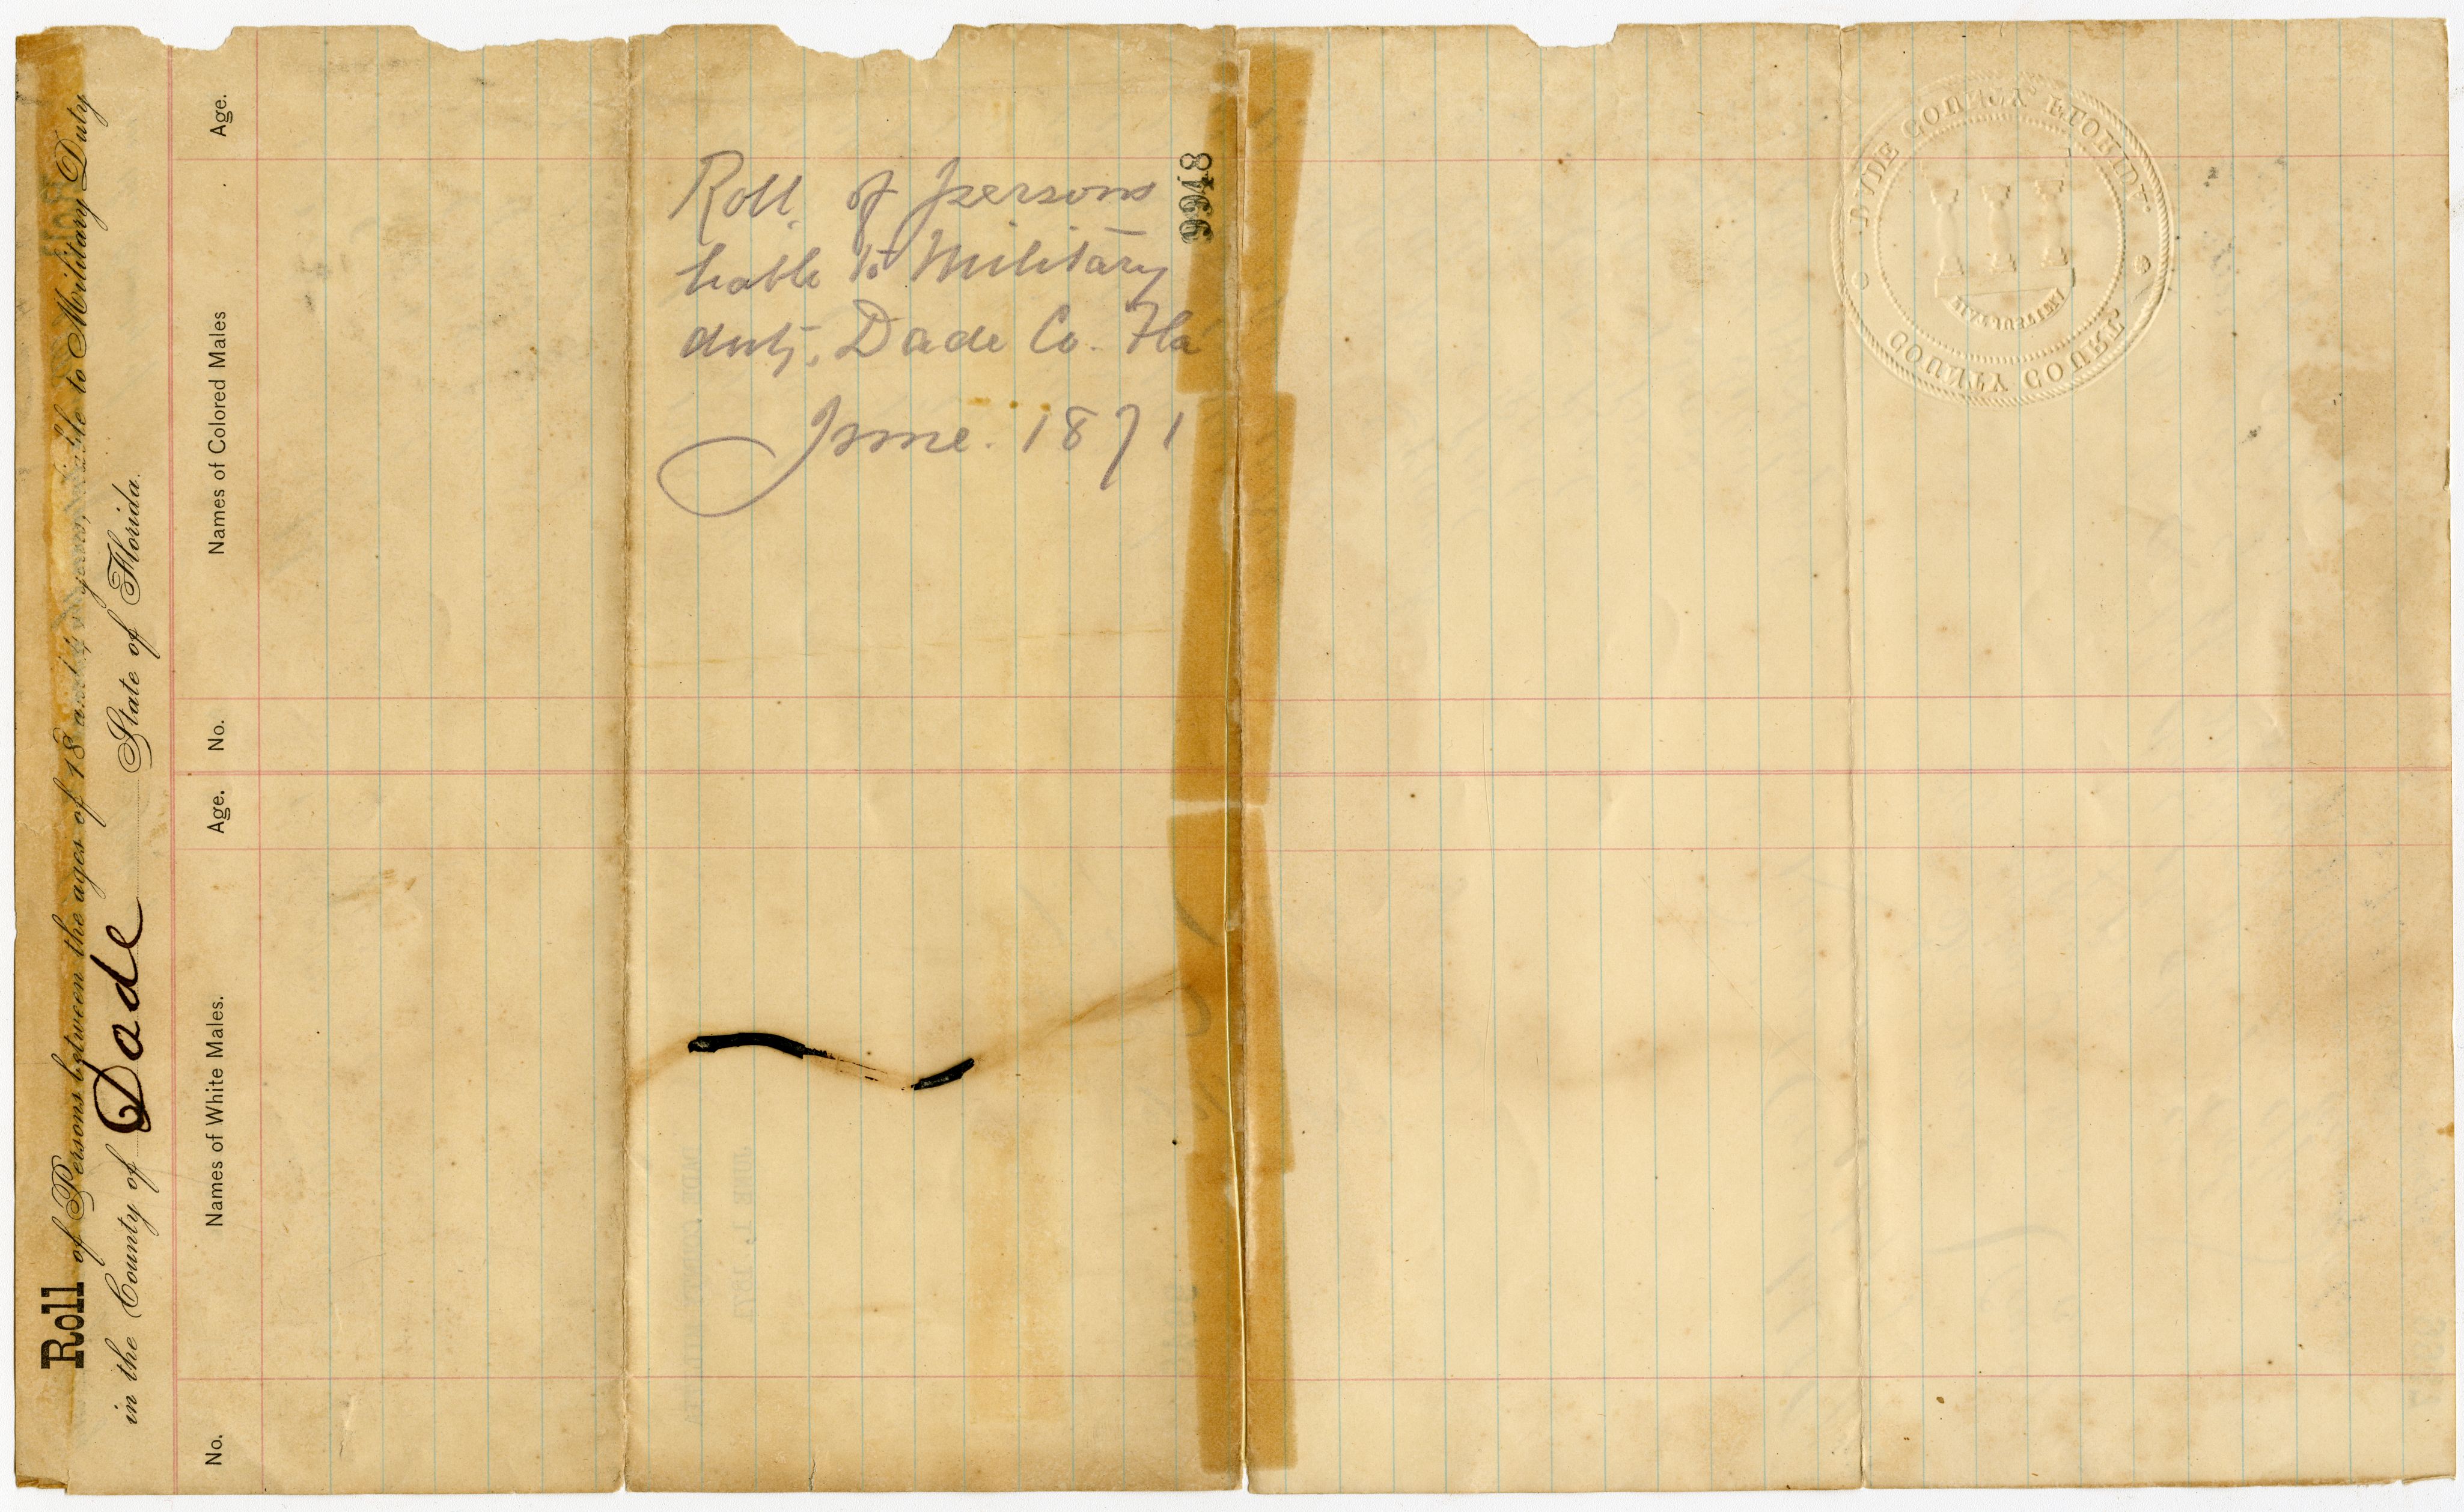 Roll of Persons between the ages of 18 and 45 years, liable to Military Duty
in the County of Dade State of Florida.
No. Names of White Males. Age. No. Names of Colored Males Age.
Roll of persons
liable to Military
duty, Dade Co. Fla
June. 1871
9948
DADE COUNTY FLORIDA.
COUNTY COURT